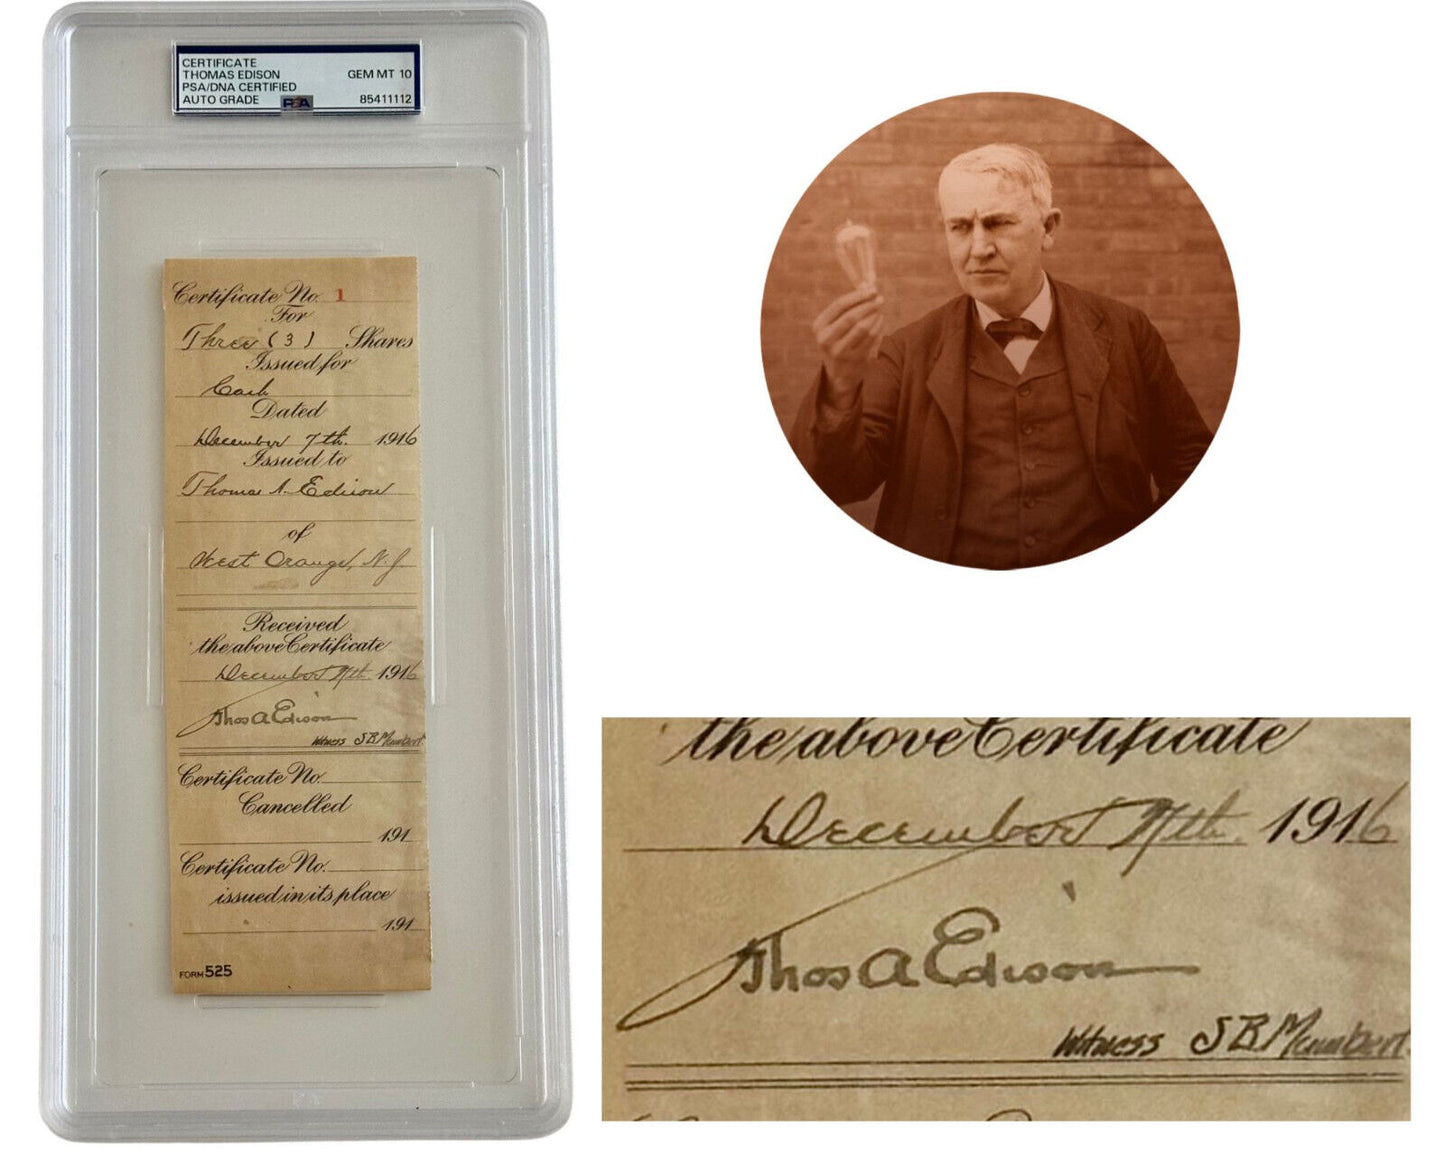 CERTIFICATE
THOMAS EDISON GEM MT 10
PSA/DNA CERTIFIED
AUTO GRADE PSA 85411112
Certificate No. 1
For
Three (3) Shares
Issued for
Cash
Dated
December 7th. 1916
Issued to
Thomas A. Edison
of
West Orange, N.J.
Received
the above Certificate
December 7th. 1916
Thos A Edison
Witness S B
Certificate No.
Cancelled
191
Certificate No.
issued in its place
191
FORM 525
the above Certificate
December 7th. 1916
Thos A Edison
Witness S B